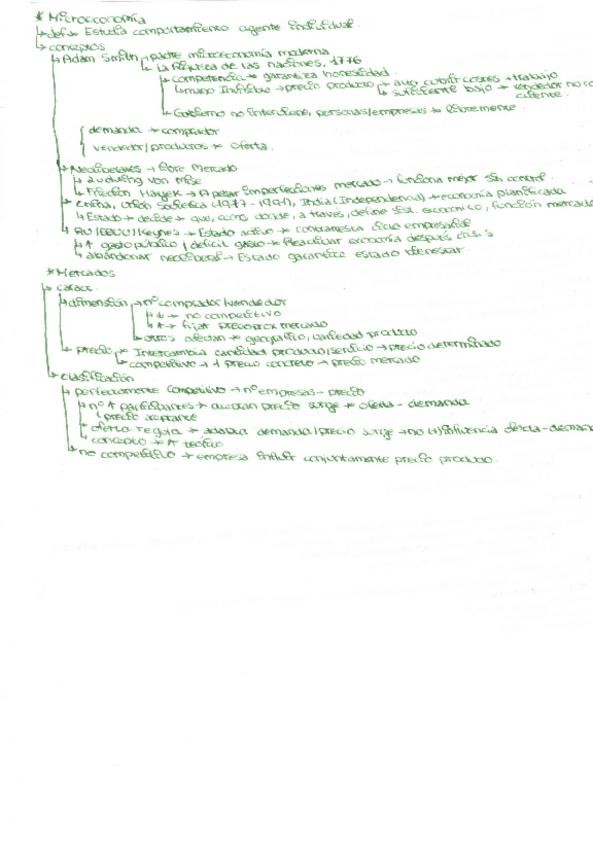 * Microeconomía
↳ def → Estudia comportamiento agente individual.
↳ conceptos
↳ Adam Smith → padre microeconomía moderna
↳ La Riqueza de las naciones, 1776
↳ competencia → garantiza honestidad
↳ mano Invisible → precio producto → cubrir costes + trabajo
↳ suficiente bajo → vendedor no
cliente.
↳ Gobierno no interviene, personas/empresas → libremente.
demanda → comprador
vendedor/productos → oferta.
↳ Neoliberales → libre Mercado
↳ Ludwing von
↳ Hayek → A pesar imperfecciones mercado → funciona mejor sin control
↳ China, Unión Soviética (1977-1991), India (Independencia) → economía planificada
↳ Estado → decide → que, como, donde, a través, define sist. económico, función mercado
↳ RU/EEUU/Keynes → Estado activo → contrarresta ciclo empresarial
↳ ↑ gasto público / deficit gasto → Reactivar economía después crisis
↳ abandonar neoliberal → Estado garantice estado bienestar.
* Mercados
↳ caract.
↳ dimensión → nº comprador/vendedor
↳ ↓ → no competitivo
↳ ↑ → fijar precio mercado
↳ otros afectan → geográfico, variedad producto
↳ precio → Intercambia cantidad producto/servicio → precio determinado
↳ competitivo → 1 precio concreto → precio mercado
↳ clasificación
↳ perfectamente competitivo → nº empresas - precio
↳ nº ↑ participantes → aceptan precio surge → oferta - demanda
precio aceptante
↳ oferta regula → adapta demanda/precio surge → no influencia oferta-demanda
↳ concepto → ↑ teórico
↳ no competitivo → empresa influir conjuntamente precio producto.